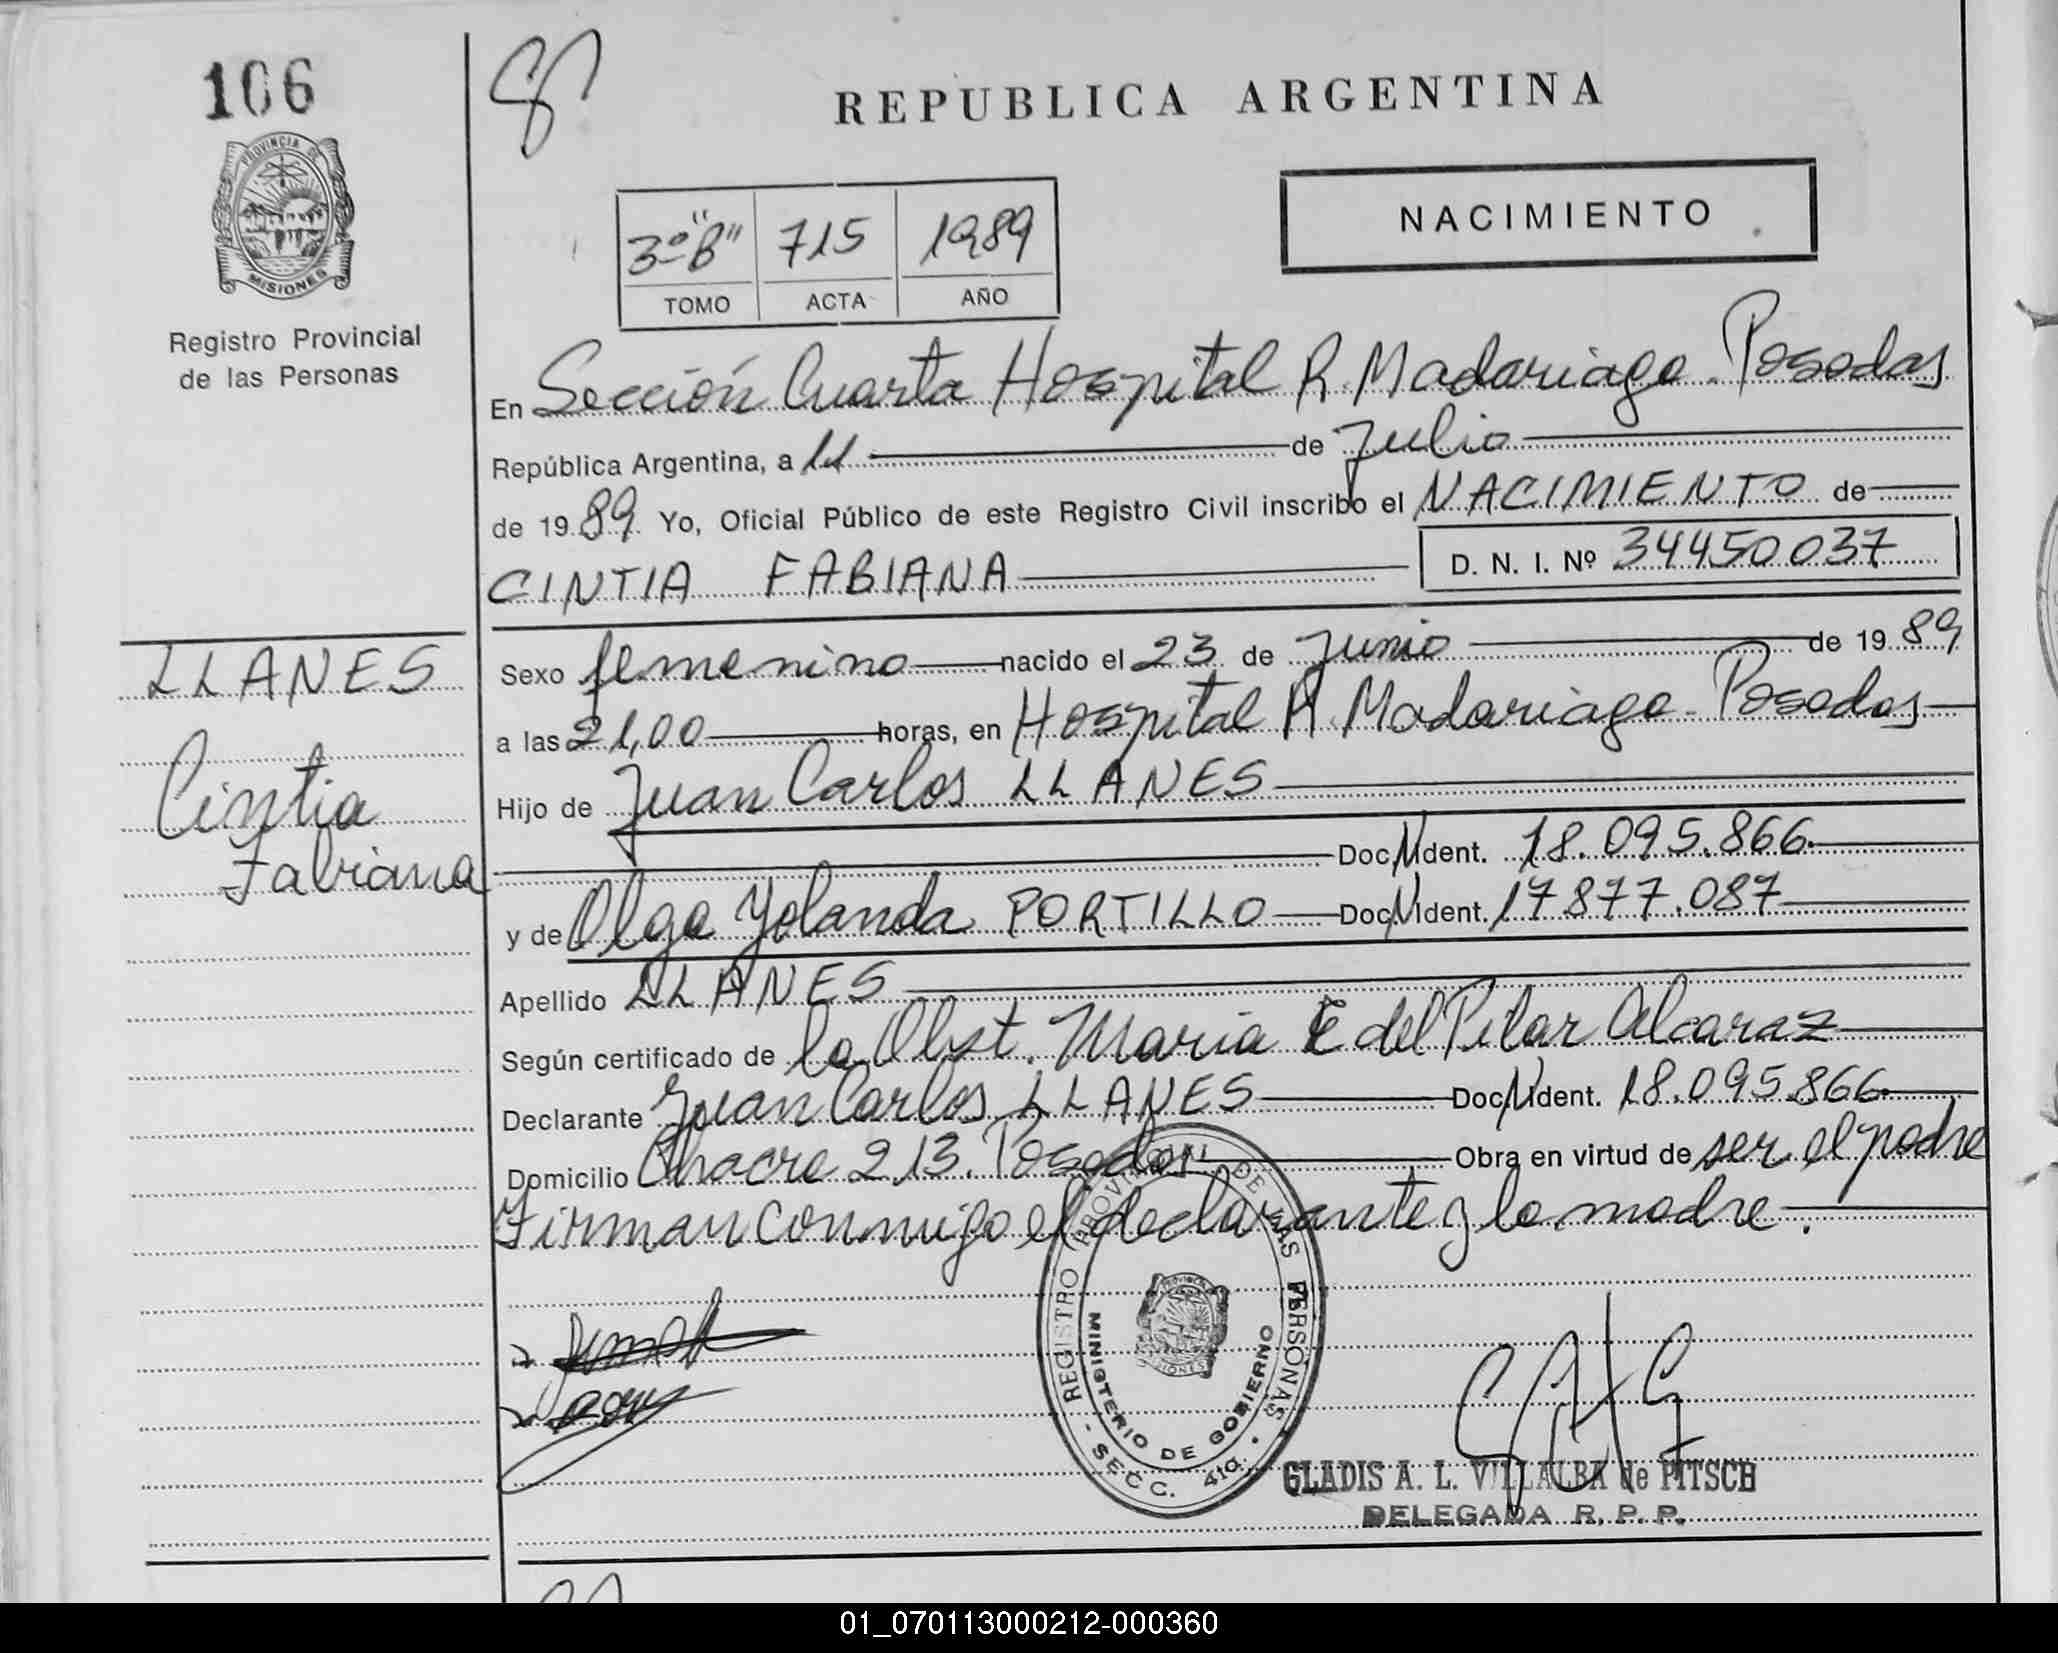 106
REPUBLICA ARGENTINA
PROVINCIA DE
MISIONES
Registro Provincial
de las Personas
3º "B" 715 1989
TOMO ACTA AÑO
NACIMIENTO
En Sección Cuarta Hospital R. Madariaga - Posadas
República Argentina, a 11 de Julio
de 1989 Yo, Oficial Público de este Registro Civil inscribo el NACIMIENTO de
CINTIA FABIANA D. N. I. Nº 34450037
LLANES
Cintia
Fabiana
Sexo femenino nacido el 23 de Junio de 1989
a las 21,00 horas, en Hospital R. Madariaga - Posadas
Hijo de Juan Carlos LLANES
Doc. N Ident. 18.095.866
y de Olga Yolanda PORTILLO Doc. N Ident. 17877.087
Apellido LLANES
Según certificado de la Obst. Maria E del Pilar Alcaraz
Declarante Juan Carlos LLANES Doc. N Ident. 18.095.866
Domicilio Chacra 213. Posadas Obra en virtud de ser el padre
Firman conmigo el declarante y la madre.
REGISTRO PROVINCIAL DE LAS PERSONAS
MINISTERIO DE GOBIERNO
- SECC. 4ta. -
GLADIS A. L. VILLALBA de PITSCH
DELEGADA R. P. P.
01_070113000212-000360